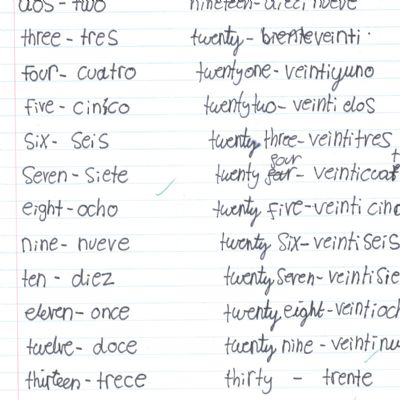 dos - two
three - tres
four - cuatro
five - cinco
six - seis
seven - siete
eight - ocho
nine - nueve
ten - diez
eleven - once
twelve - doce
thirteen - trece
nineteen - dieci nueve
twenty - veinti
twentyone - veintiyuno
twentytwo - veinti dos
twenty three - veintitres
twenty four - veinticuat
twenty five - veinti cinc
twenty six - veinti seis
twenty seven - veinti sie
twenty eight - veintioch
twenty nine - veintinu
thirty - trente